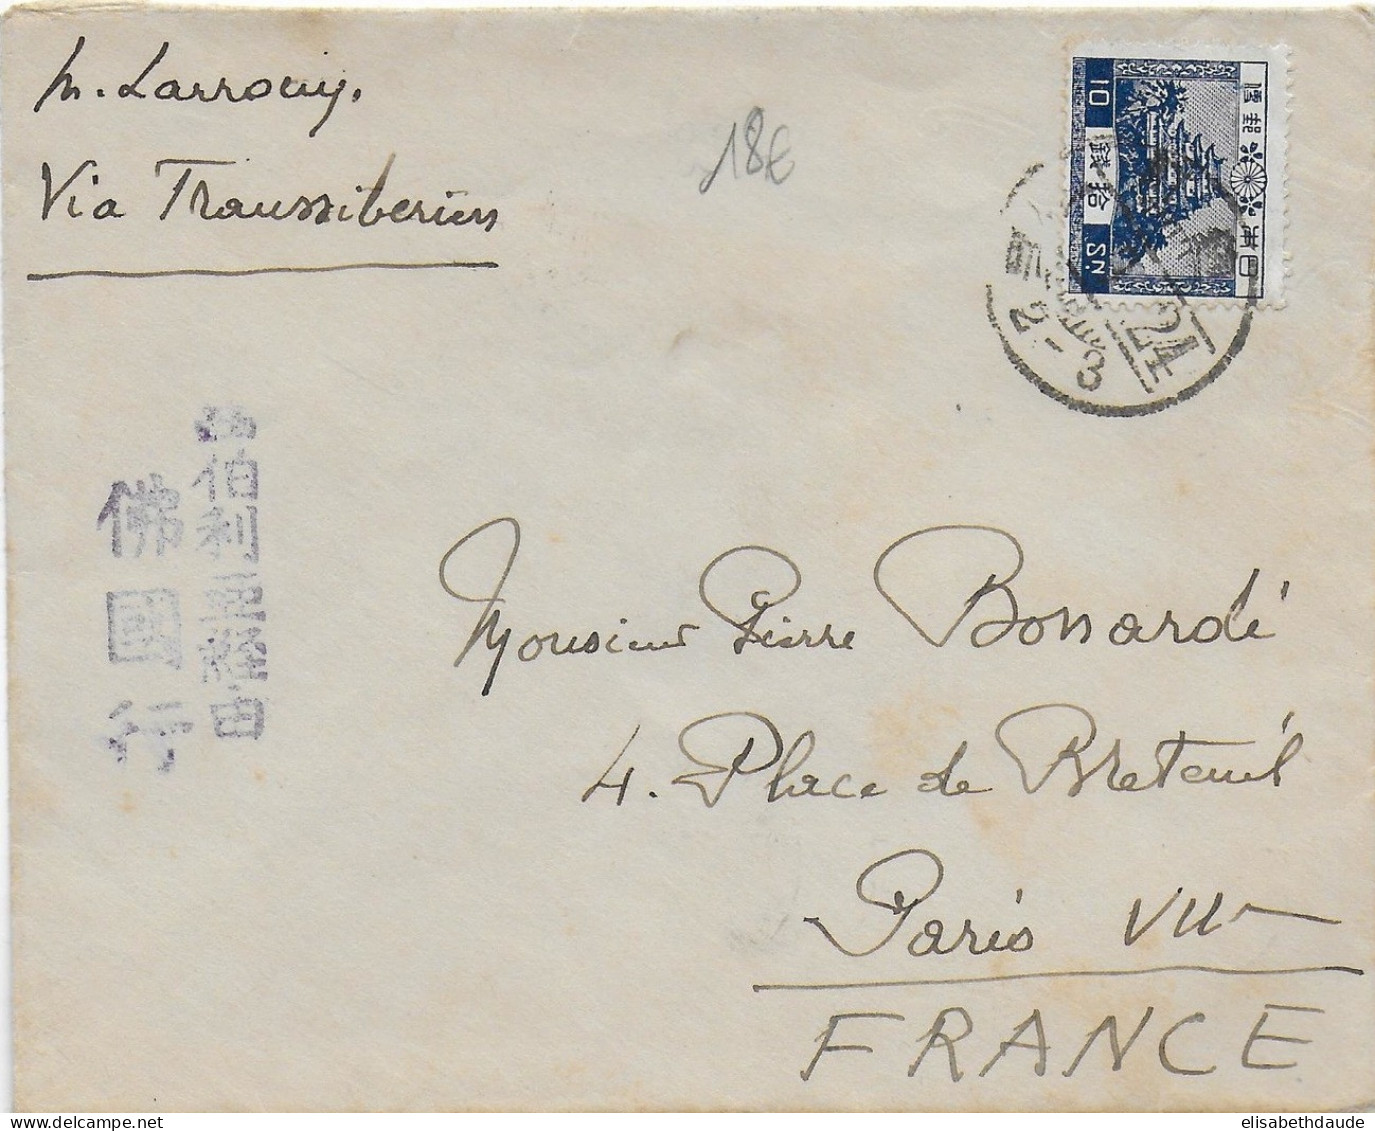 M. Larrouy.
Via Transsibérien
18€
10
SN.
錢拾
日本郵便
24
2-3
西伯利亞經由
佛國行
Monsieur Pierre Bonnardé
4. Place de Breteuil
Paris VII
FRANCE
elisabethdaude